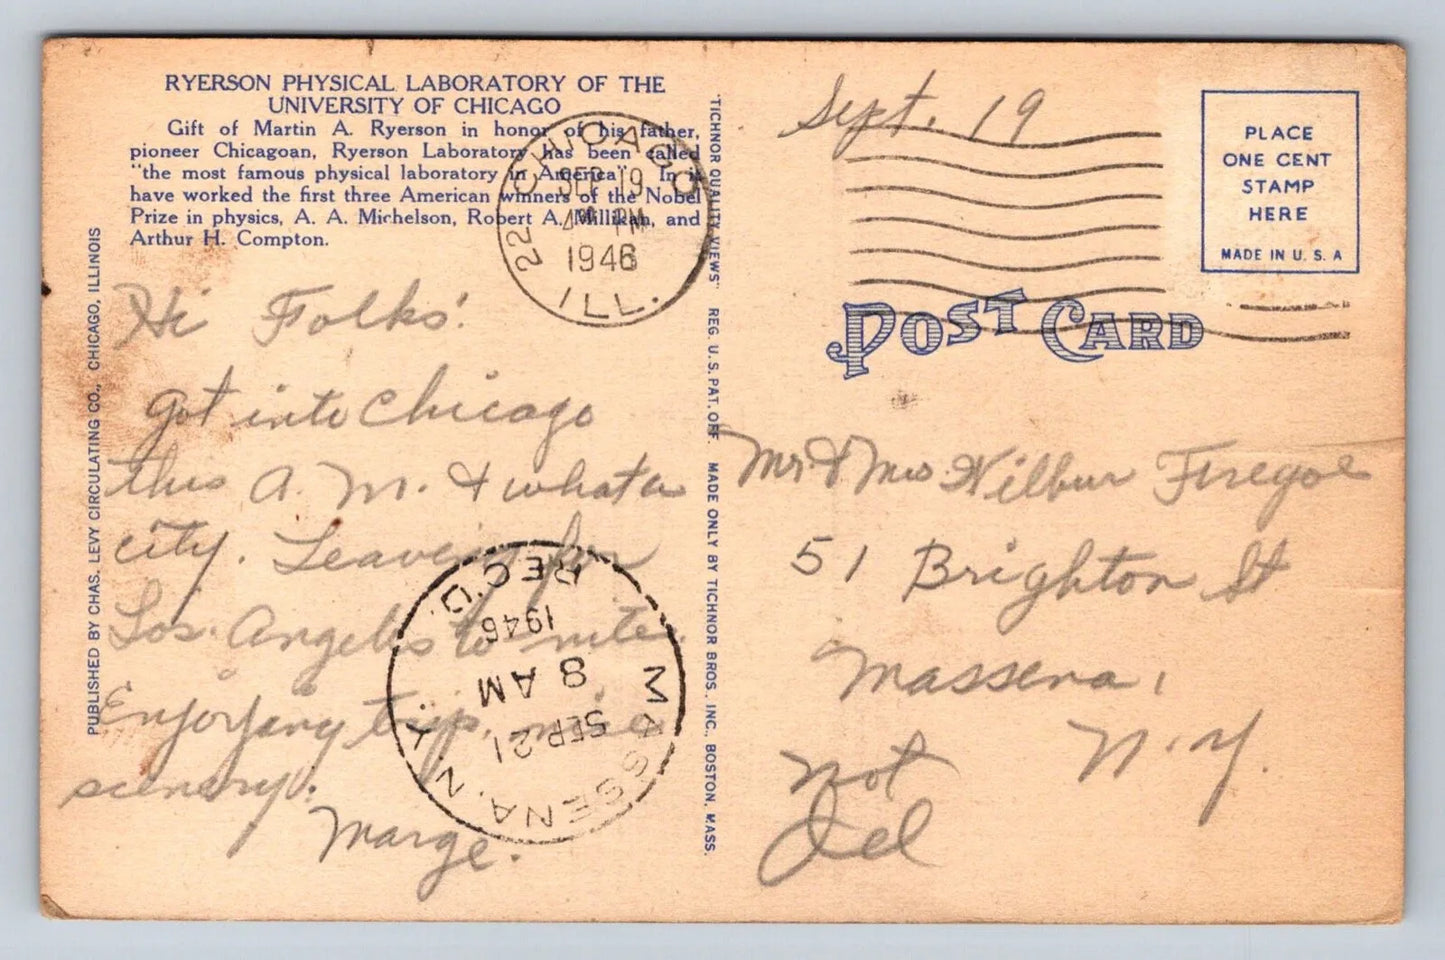 RYERSON PHYSICAL LABORATORY OF THE
UNIVERSITY OF CHICAGO
Gift of Martin A. Ryerson in honor of his father,
pioneer Chicagoan, Ryerson Laboratory has been called
"the most famous physical laboratory in America". In it
have worked the first three American winners of the Nobel
Prize in physics, A. A. Michelson, Robert A. Millikan, and
Arthur H. Compton.
PUBLISHED BY CHAS. LEVY CIRCULATING CO., CHICAGO, ILLINOIS
CHICAGO
SEP 19
4 PM
1946
22
ILL.
Hi Folks!
Got into Chicago
this A. M. & what a
city. Leaving for
Los Angeles to-nite.
Enjoying trip, nice
scenery.
Marge.
REC'D.
1946
8 AM
SEP 21
MASSENA, N.Y.
"TICHNOR QUALITY VIEWS" REG. U. S. PAT. OFF. MADE ONLY BY TICHNOR BROS., INC., BOSTON, MASS.
Sept. 19
PLACE
ONE CENT
STAMP
HERE
MADE IN U. S. A
POST CARD
Mr & Mrs Wilbur
51 Brighton St
Massena,
N.Y.
not
Del